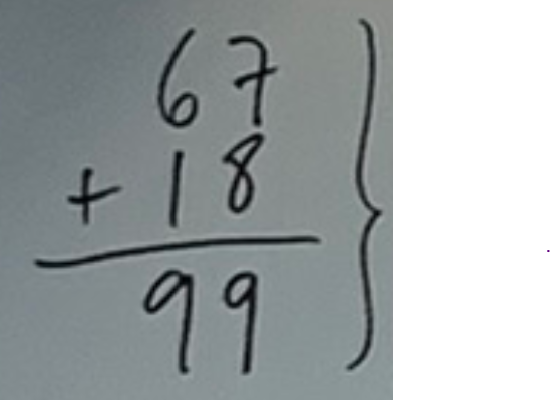 67
+ 18
99